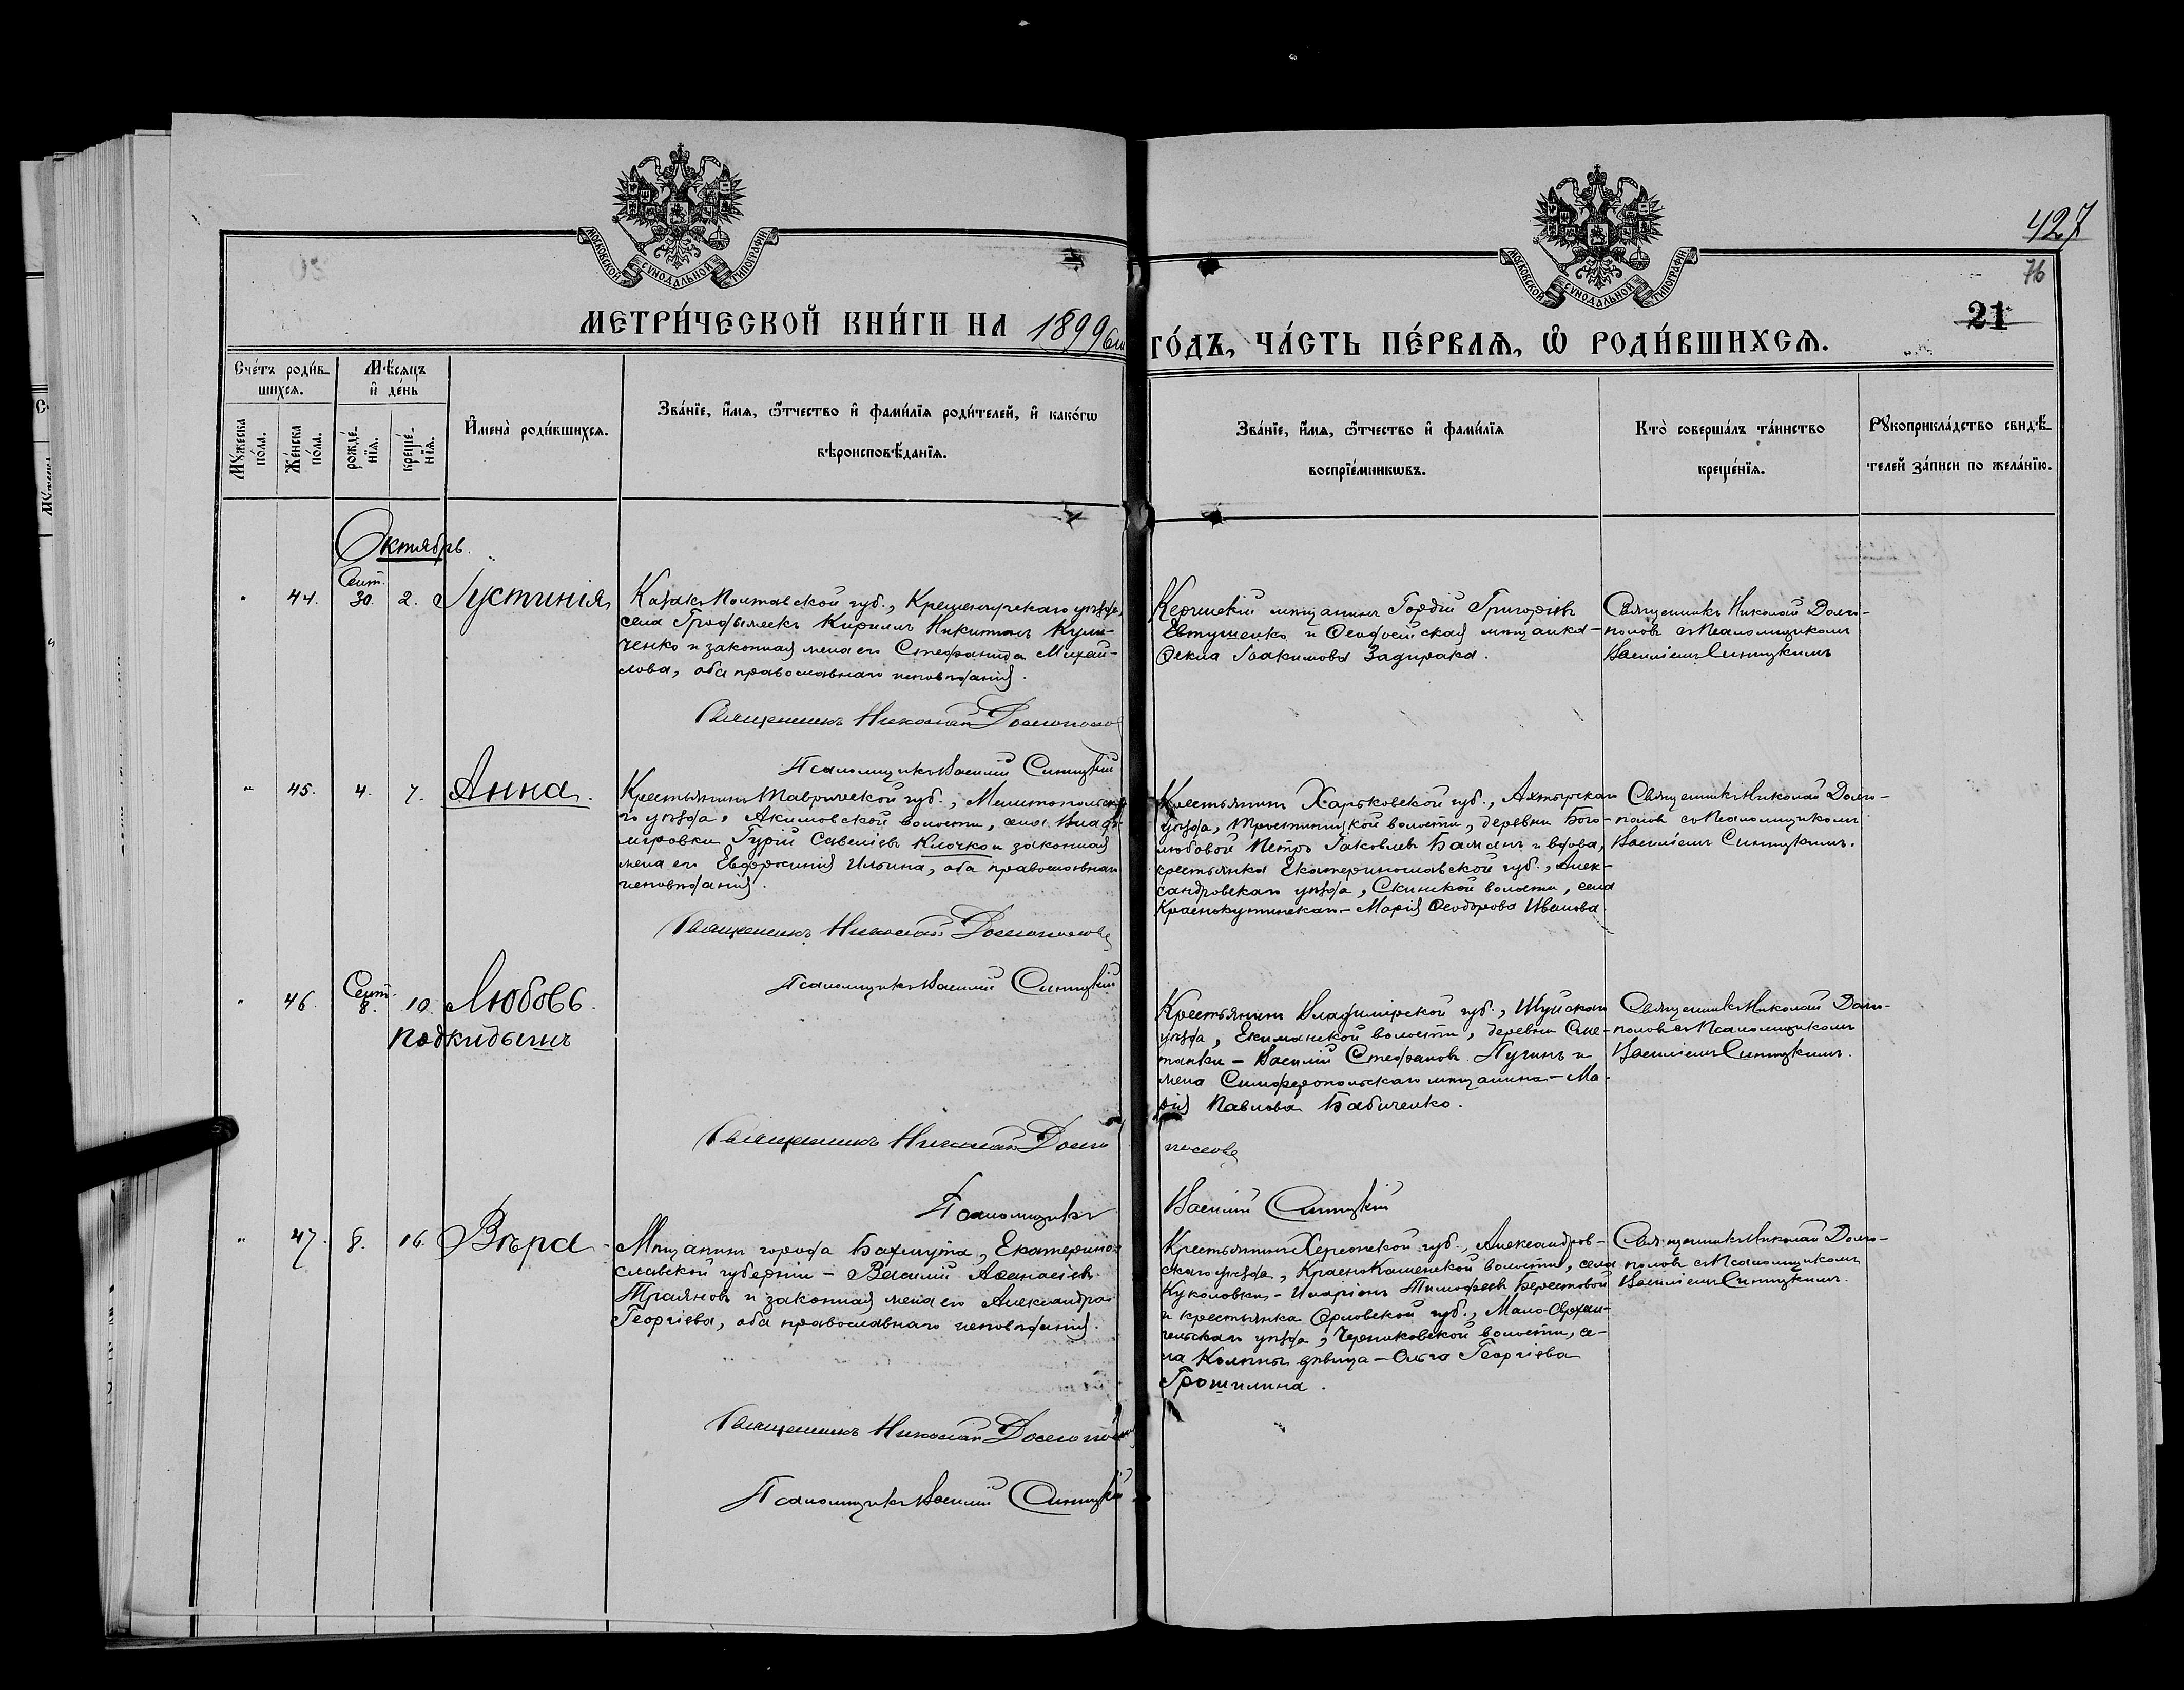 МОСКОВСКОЙ СѴНОДАЛЬНОЙ ТИПОГРАФІИ
МОСКОВСКОЙ СѴНОДАЛЬНОЙ ТИПОГРАФІИ
427
76
21
МЕТРИ́ЧЕСКОЙ КНИ́ГИ НА 1899 ГО́ДЪ, ЧА́СТЬ ПЕ́РВАѦ, Ѡ҆ РОДИ́ВШИХСѦ.
Сче́тъ роди́в-
шихсѧ.
Мѣ́сѧцъ
и҆ де́нь
Мꙋ́жеска
по́ла.
Же́нска
по́ла.
рожде́-
нїѧ.
креще́-
нїѧ.
И҆мена̀ роди́вшихсѧ.
Зва́нїе, и҆́мѧ, ѻ҆́тчество и҆ фами́лїѧ роди́телей, и҆ како́гѡ
вѣроисповѣ́данїѧ.
Зва́нїе, и҆́мѧ, ѻ҆́тчество и҆ фами́лїѧ
воспрїе́мникѡвъ.
Кто̀ соверша́лъ та́инство
креще́нїѧ.
Рꙋкоприкла́дство свидѣ́-
телей за́писи по жела́нїю.
Октябрь.
" 44. Сент. 30. 2. Іустинія
Казакъ Полтавской губ., Кременчугскаго уѣзда,
села Кириллъ Никитинъ Кули-
ченко и законная жена его Стефанида Михай-
лова, оба православнаго исповѣданія.
Священникъ Николай Долгополов
Псаломщикъ Василій Синицкій
Керченскій мѣщанинъ Гордій Григорьевъ
Евтушенко и Ѳеодосійская мѣщанка -
Ѳекла Іоакимова Задирака.
Священникъ Николай Долго-
половъ съ Псаломщикомъ
Василіемъ Синицкимъ
" 45. 4. 7. Анна.
Крестьянинъ Таврической губ., Мелитопольска-
го уѣзда, Акимовской волости, села Влади-
міровки Гурій Савельевъ Клочко и законная
жена его Евфросинія Ильина, оба православнаго
исповѣданія.
Священникъ Николай Долгополовъ
Псаломщикъ Василій Синицкій
Крестьянинъ Харьковской губ., Ахтырскаго
уѣзда, Тростяницкой волости, деревни Бого-
любовой Петръ Іаковлевъ Баманъ и вдова,
крестьянка Екатеринославской губ., Алек-
сандровскаго уѣзда, волости, села
Краснокутинскаго - Марія Ѳеодорова Иванова.
Священникъ Николай Долго-
половъ съ Псаломщикомъ
Василіемъ Синицкимъ.
" 46. Сент. 8. 10. Любовь.
Подкидышъ
Священникъ Николай Долго
половъ
Псаломщикъ
Василій Синицкій
Крестьянинъ Владимірской губ., Шуйскаго
уѣзда, волости, деревни Сме-
танки - Василій Стефановъ Пугинъ и
жена Симферопольскаго мѣщанина - Ма-
рія Павлова Бабиченко.
Священникъ Николай Долго-
половъ съ Псаломщикомъ
Василіемъ Синицкимъ.
" 47. 8. 16. Вѣра -
Мѣщанинъ города Бахмута, Екатерино-
славской губерніи - Василій Аѳанасіевъ
Трояновъ и законная жена его Александра
Георгіева, оба православнаго исповѣданія.
Священникъ Николай Долгополов
Псаломщикъ Василій Синицкій
Крестьянинъ Херсонской губ., Александров-
скаго уѣзда, КрасноКаменской волости, села
Куколовки - Иларіонъ Тимоѳеевъ Берестовой
и крестьянка Орловской губ., Мало-Архан-
гельскаго уѣзда, волости, се-
ла Колпны дѣвица - Ольга Георгіева
Грошилина.
Священникъ Николай Долго-
половъ съ Псаломщикомъ
Василіемъ Синицкимъ.